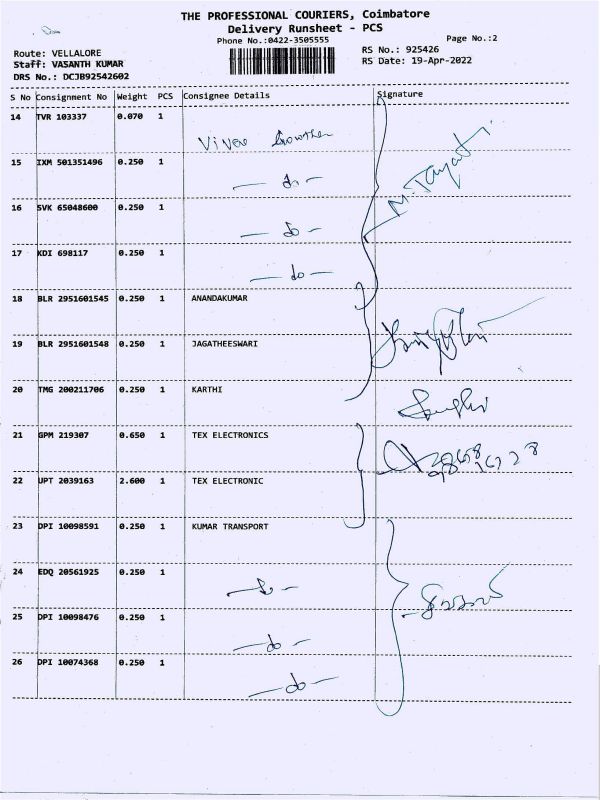 THE PROFESSIONAL COURIERS, Coimbatore
Delivery Runsheet - PCS
Phone No.:0422-3505555
Page No.:2
Route: VELLALORE
RS No.: 925426
Staff: VASANTH KUMAR
RS Date: 19-Apr-2022
DRS No.: DCJB92542602
S No Consignment No Weight PCS Consignee Details Signature
14 TVR 103337 0.070 1
15 IXM 501351496 0.250 1 - do -
16 SVK 65048600 0.250 1 - do -
17 KDI 698117 0.250 1 - do -
18 BLR 2951601545 0.250 1 ANANDAKUMAR
19 BLR 2951601548 0.250 1 JAGATHEESWARI
20 TMG 200211706 0.250 1 KARTHI
21 GPM 219307 0.650 1 TEX ELECTRONICS
22 UPT 2039163 2.600 1 TEX ELECTRONIC
23 DPI 10098591 0.250 1 KUMAR TRANSPORT
24 EDQ 20561925 0.250 1 - do -
25 DPI 10098476 0.250 1 - do -
26 DPI 10074368 0.250 1 - do -